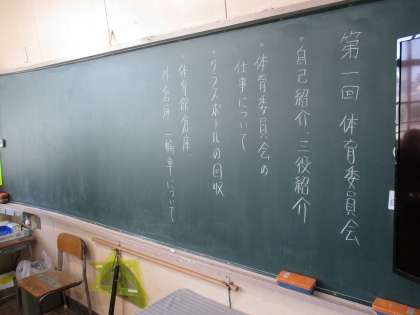 第一回 体育委員会
・自己紹介、三役紹介
・体育委員会の
仕事について
・クラスボールの回収
体育館倉庫
外倉庫 一輪車について